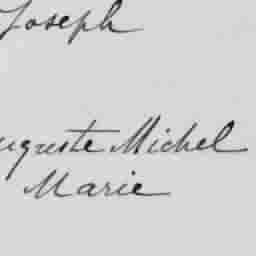 Joseph
uguste Michel
Marie